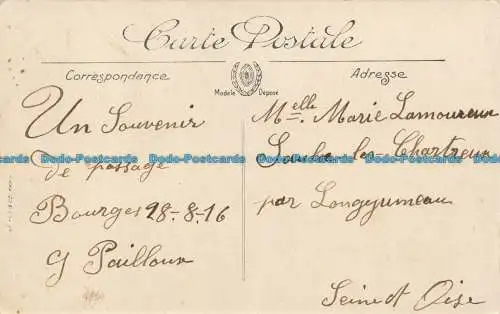 Carte Postale
Correspondance
Modèle Déposé
Adresse
Un Souvenir
de passage
Bourges 28-8-16
G Pailloux
Melle Marie Lamoureux
Saulx les Chartreux
par Longjumeau
Seine et Oise
Dodo-Postcards Dodo-Postcards Dodo-Postcards Dodo-Postcards Dodo-Postcards